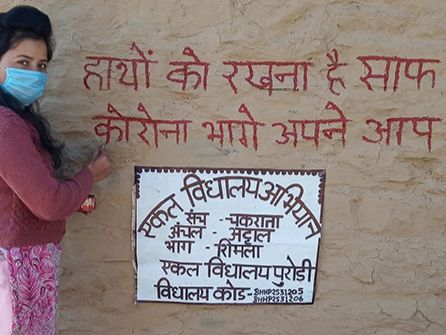 हाथों को रखना है साफ
कोरोना भागे अपने आप
एकल विद्यालय अभियान
संच - चकराता
अंचल - अट्टाल
भाग - शिमला
एकल विद्यालय पुरोडी
विद्यालय कोड- BHHP2531205
BHHP2531206